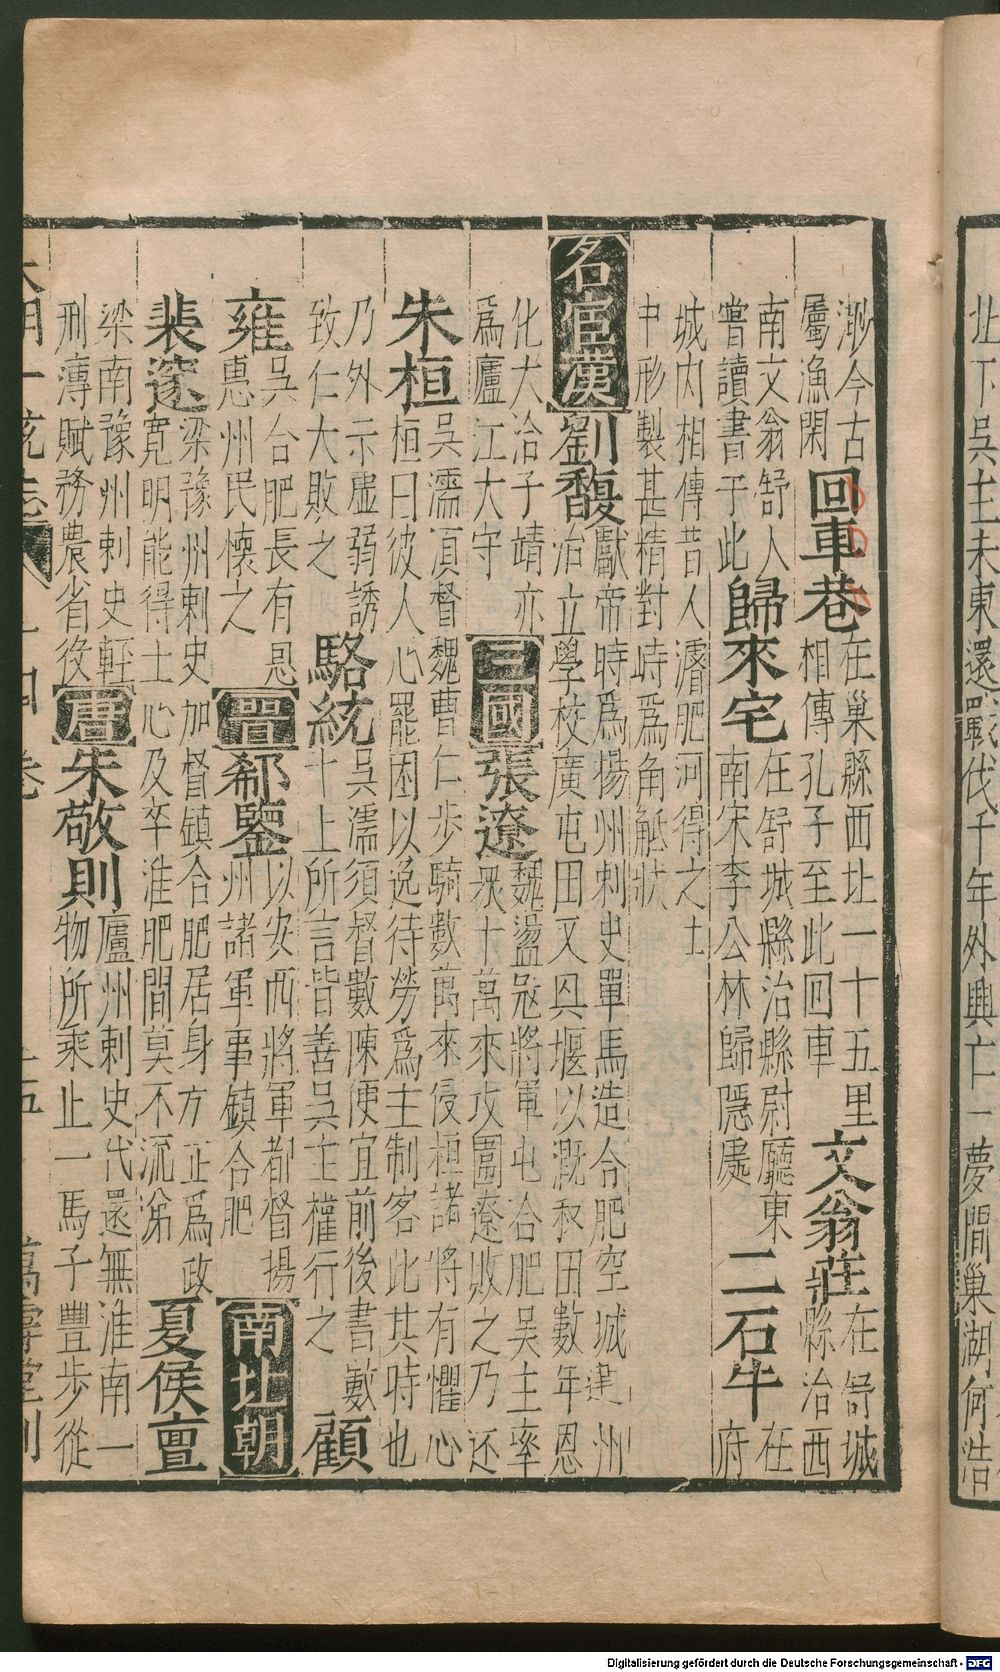 北下吳主未東還戰伐千年外興亡一夢間巢湖何浩
渺今古
屬漁閑
回車巷
在巢縣西北一十五里
相傳孔子至此回車
文翁莊
在舒城
縣治西
南文翁舒人
嘗讀書于此
歸來宅
在舒城縣治縣尉廳東
南宋李公林歸隱處
二石牛
在
府
城内相傳昔人濬肥河得之土
中形製甚精對峙爲角觝狀
名宦漢
劉馥
獻帝時爲揚州刺史單馬造合肥空城建州
治立學校廣屯田又具堰以溉和田數年恩
化大洽子靖亦
爲廬江大守
三國
張遼
魏盪冦將軍屯合肥吳主率
衆十萬來攻圍遼敗之乃还
朱桓
吳濡湏督魏曹仁步騎數萬來侵桓諸將有懼心
桓曰彼人心罷困以逸待勞爲主制客此其時也
乃外示虛弱誘
致仁大敗之
駱統
吳濡須督數陳便宜前後書數
十上所言皆善吳主權行之
顧
雍
吳合肥長有恩
惠州民懷之
晉
郗鑒
以安西將軍都督揚
州諸軍事鎮合肥
南北朝
裴邃
梁豫州刺史加督鎮合肥居身方正爲政
寬明能得士心及卒淮肥間莫不流涕
夏侯亶
梁南豫州刺史輕
刑薄賦務農省役
唐
朱敬則
廬州刺史代還無淮南一
物所乘止一馬子豐步從
大明一統志
十四卷
十五
萬壽堂刊
Digitalisierung gefördert durch die Deutsche Forschungsgemeinschaft - DFG